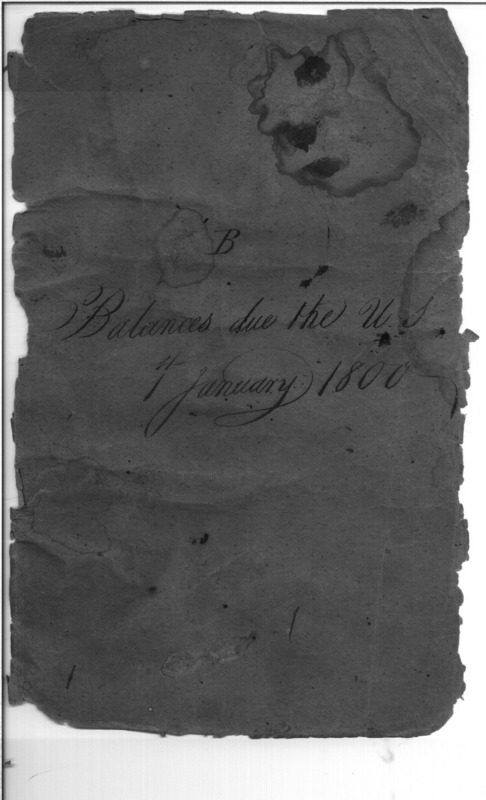 B
Balances due the U.S
1st January 1800